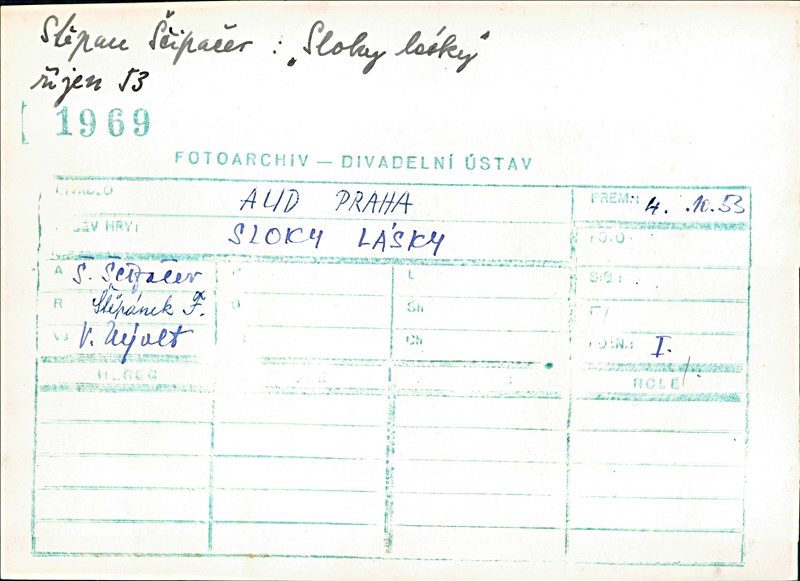 Stěpan Ščipačev : „Sloky lásky"
říjen 53
1969
FOTOARCHIV — DIVADELNÍ ÚSTAV
DIVADLO AUD PRAHA PREM.: 4. .10.53
SLOKY LÁSKY
A Š. Ščipačev
R Štěpánek F.
V. Nývlt
Sh
Ch
I.
HEREC ROLE